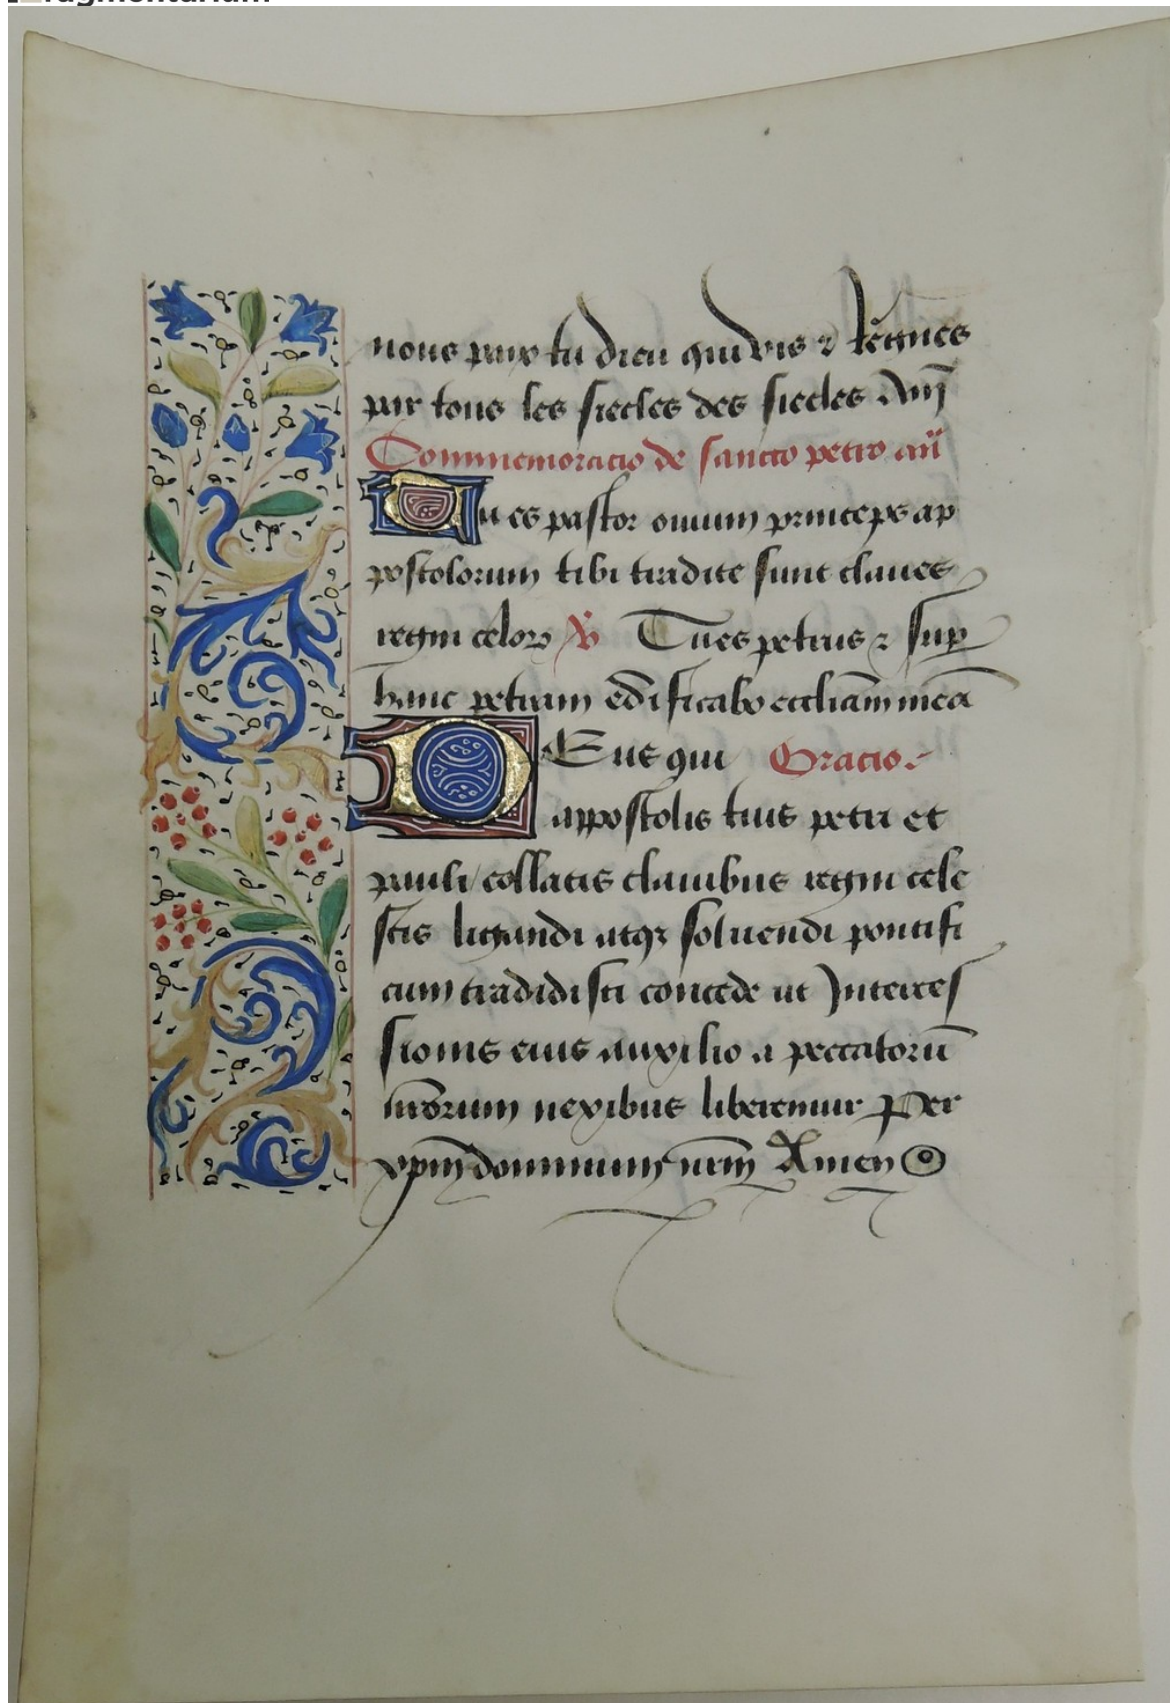 ragmentarium
nous paix tu dieu qui vis ⁊ regnes
par tous les siecles des siecles Am̄
Commemoracio de sancto petro an̄
Tu es pastor ouium princeps ap
postolorum tibi tradite sunt claues
regni celoꝝ ℣ Tu es petrus ⁊ sup
hanc petram edificabo eccliam̄ meā
DEus qui Oracio
appostolis tuis petri et
pauli / collatis clauibus regni cele
stis ligandi atqꝫ soluendi pontifi
cium tradidisti concede ut Interces
sionis eius auxilio a peccatorū
nr̄orum nexibus liberemur Per
xpm̄ dominum nrm̄ Amen